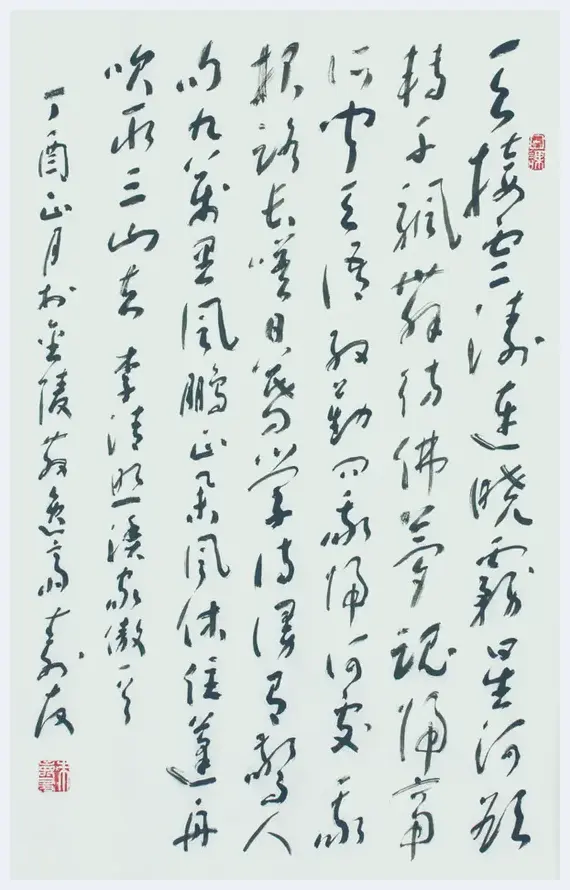 天接雲濤連曉霧星河欲
轉千帆舞彷佛夢魂歸帝
所聞天語殷勤問我歸何處我
報路長嗟日暮學詩謾有驚人
句九萬里風鵬正舉風休住蓬舟
吹取三山去 李清照漁家傲一首
丁酉正月於金陵散逸齋壽友